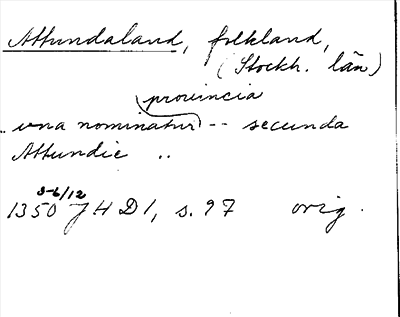 Attundaland, folkland,
(Stockh. län)
provincia
.. vna nominatur -- secunda
Attundie ..
3-6/12
1350 JHD 1, s. 97 orig.